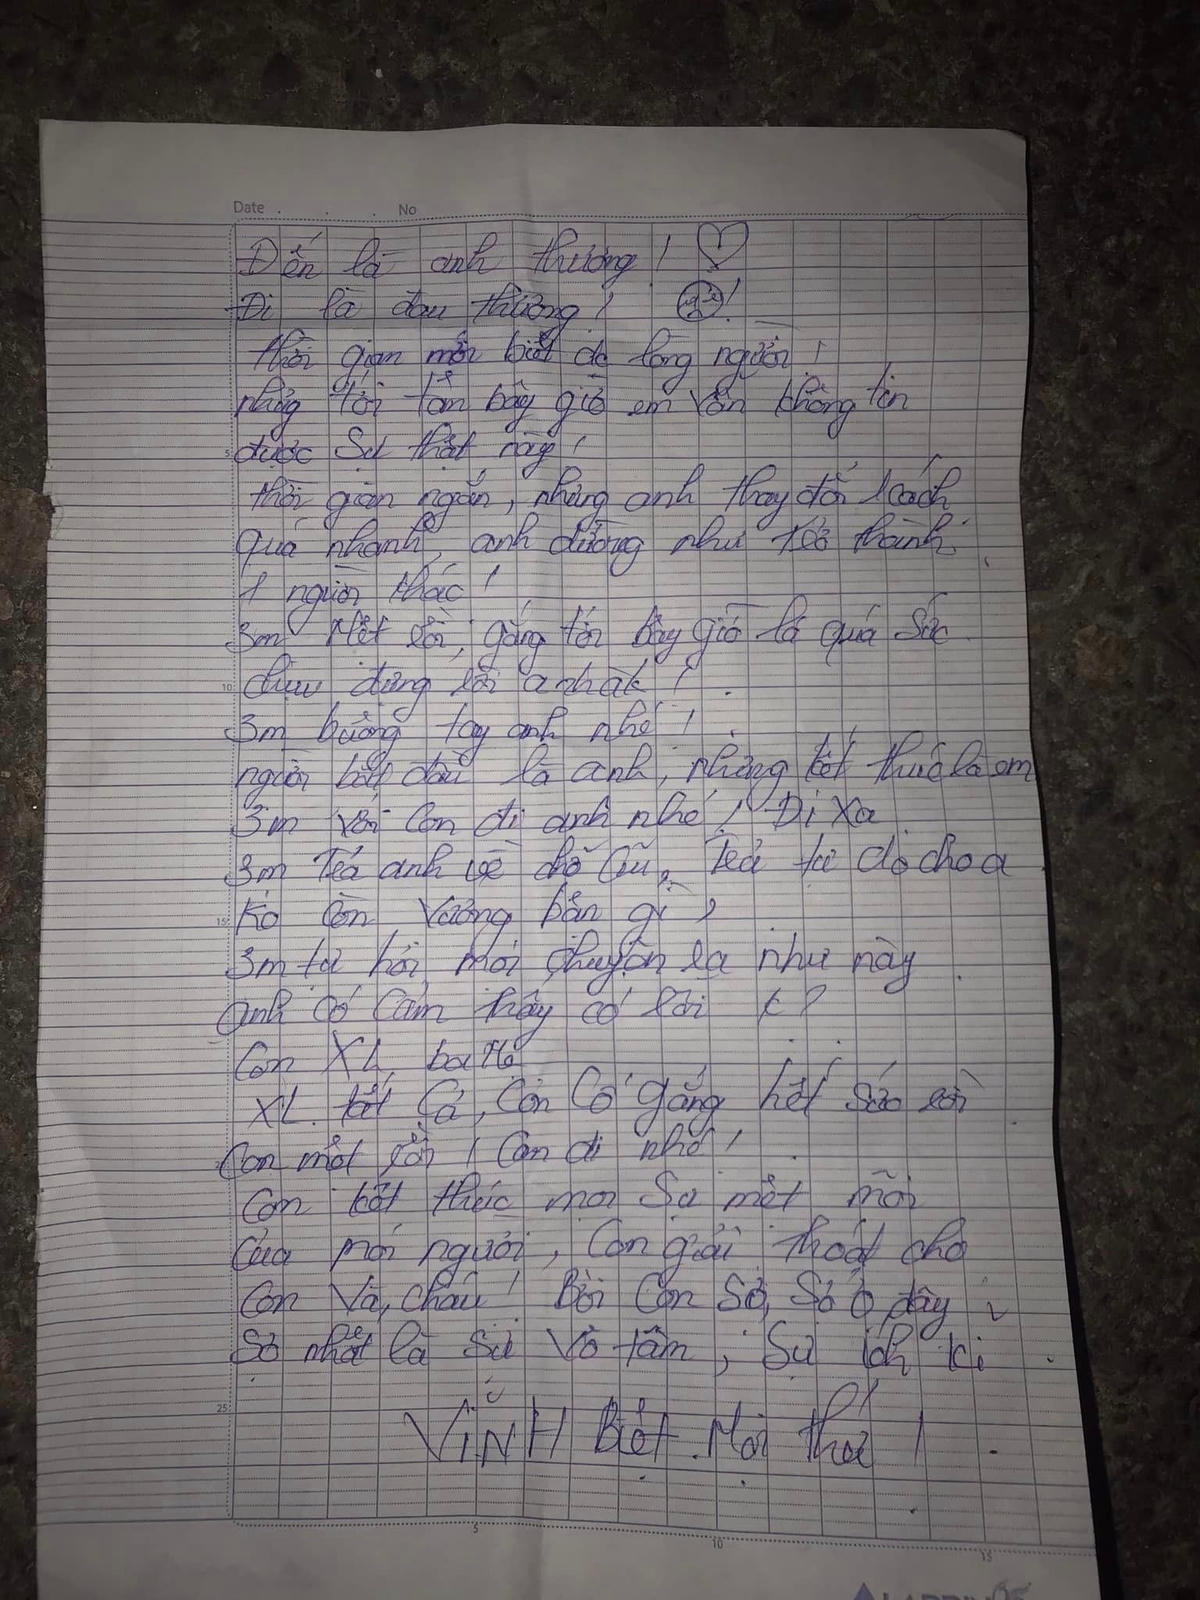 Date . . . No
Đến là anh thương !
Đi là đau thương !
thời gian mới biết dc lòng người !
nhưng tới tầm bây giờ em vẫn không tin
được sự thật này !
thời gian ngắn, nhưng anh thay đổi cách
quá nhanh, anh dường như trở thành
1 người khác !
Em mệt rồi, gắng tới bây giờ là quá sức
chịu đựng rồi anhak !
Em buông tay anh nhé !
người bắt đầu là anh, nhưng kết thúc là em
Em với con đi anh nhé ! Đi xa
Em trả anh về chỗ cũ, trả tự do cho a
ko còn vướng bận gì
Em tự hỏi mọi chuyện ra như này
anh có cảm thấy có lỗi k?
Con XL ba mẹ
XL tất cả, Con Cố gắng hết sức rồi
Con mệt rồi ! Con đi nhé !
Con kết thúc mọi sự mệt mõi
Của mọi người, Con giải thoát cho
Con và cháu ! Bởi Con sợ, sợ ở đây
Sợ nhất là sự vô tâm, sự ích kỉ
VĨNH Biệt Mọi thứ !
5
10
15
25
5
10
15